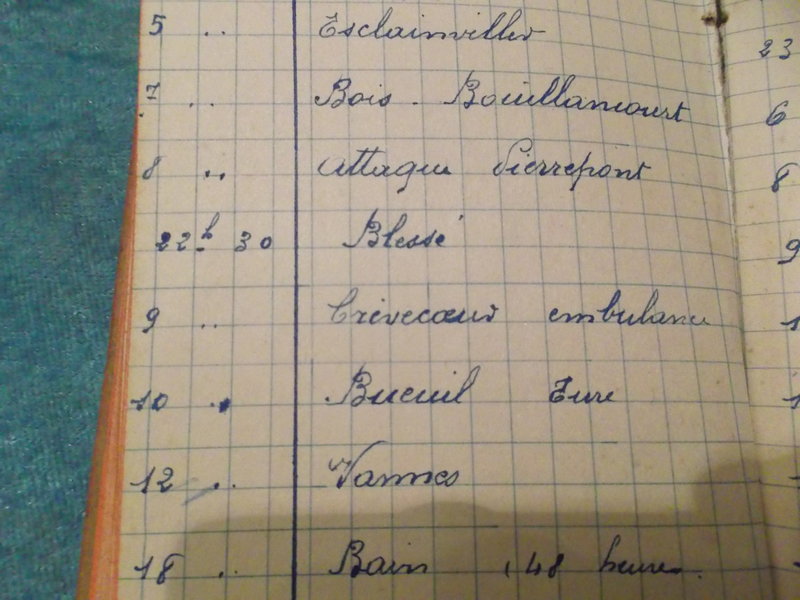 5 .. Esclainviller
23
7 .. Bois. Bouillancourt
6
8 .. Attaque Pierrepont
8
22h 30 Blessé
9
9 .. Crèvecœur embulance
1
10 .. Bueuil Eure
1
12 .. Vannes
18 .. Bain 48 heures.